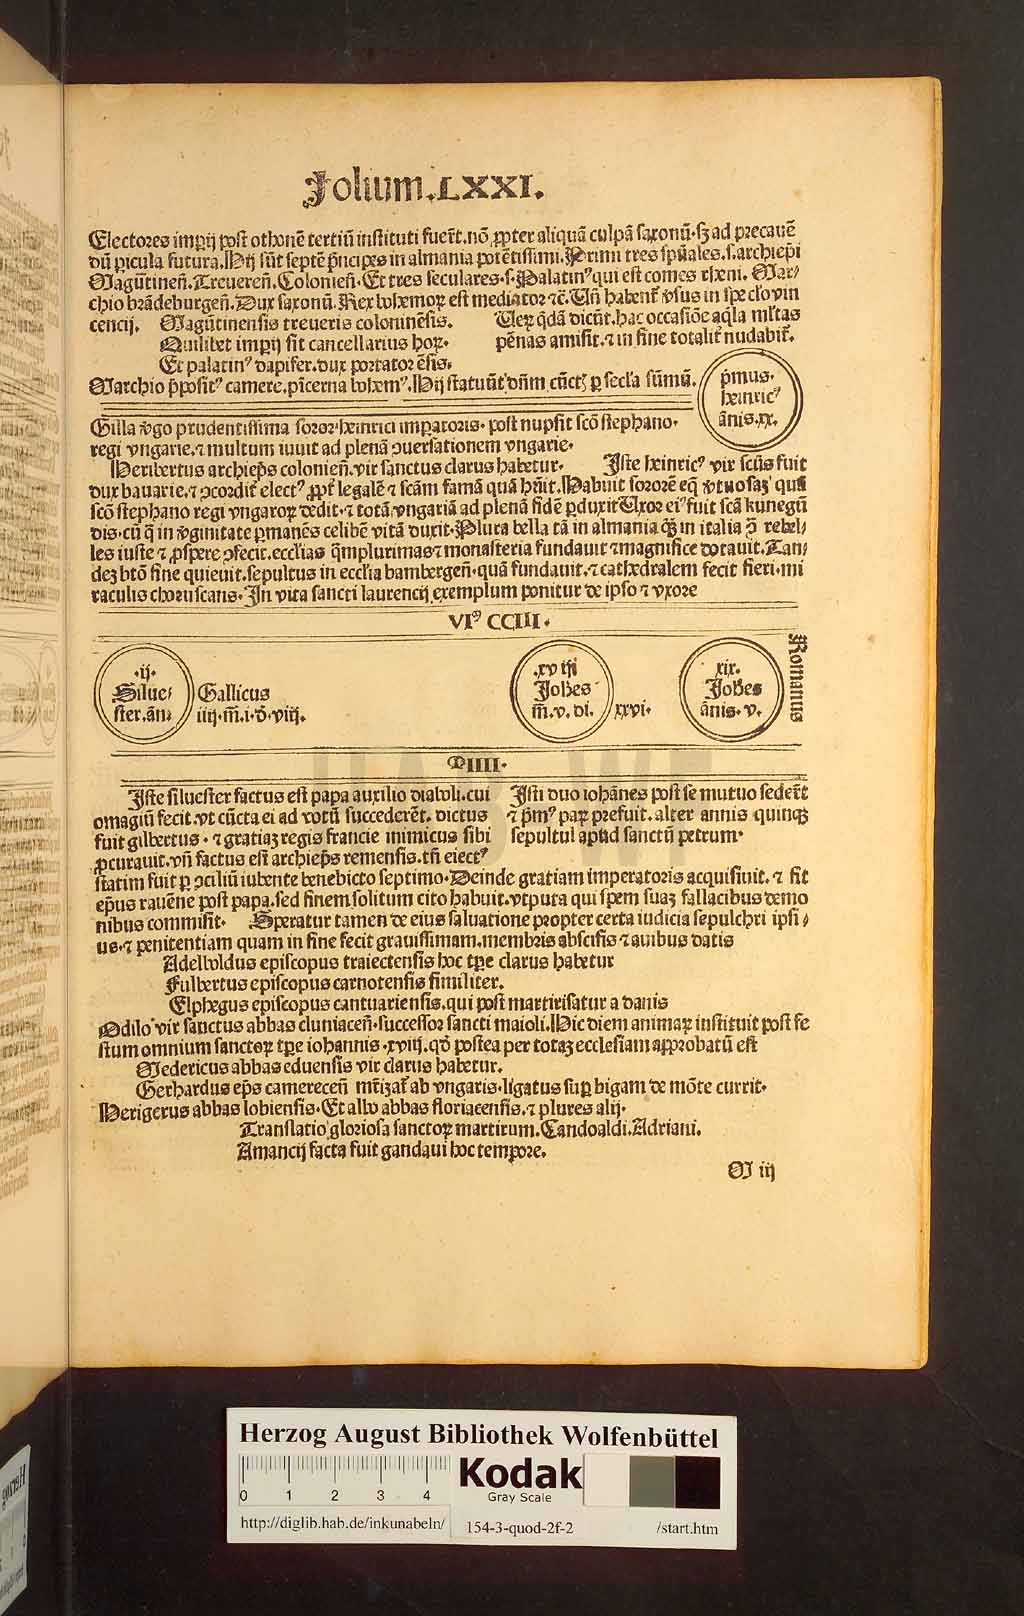 Folium.LXXI.
Electores imꝑij post othonē tertiū instituti fuer̄t.nō ꝓpter aliquā culpā saxonū.sꝫ ad precauē
dū ꝑicula futura.Hij sūt septē p̄ncipes in almania potētissimi.Primi tres sp̄uales.s.archiep̄i
Magūtineñ.Treuereñ.Colonieñ.Et tres seculares.s.Palatinꝰ qui est comes rheni.Mar-
chio brādeburgeñ.Dux saxonū.Rex bohemoꝝ est mediator ⁊c̄.Vñ habent̄ v̓sus in speclo vin
cencij. Magūtinensis treueris coloninēsis.
Quilibet imꝑij fit cancellarius hoꝝ.
Et palatinꝰ dapifer.dux portator ēsis.
Veꝝ q̄dā dicūt.hac occasiōe aq̄la ml̄tas
pēnas amisit.⁊ in fine totalit̄ nudabit̄.
Marchio p̄positꝰ camere.pīcerna bohemꝰ.Hij statuūt dñm cūctꝭ ꝑ secl̄a sūmū.
p̄mus.
heinricꝰ
ānis.xx.
Gilla v̓go prudentissima soror heinrici imperatoris. post nupsit scō stephano.
regi vngarie.⁊ multum iuuit ad plenā ↄuersationem vngarie.
Heribertus archiep̄s colonieñ.vir sanctus clarus habetur. Iste heinricꝰ vir scūs fuit
dux bauarie.⁊ ↄcordit̄ electꝰ ꝓpt̄ legalē ⁊ scām famā quā hūit.Habuit sororē eq̄ v̓tuosaꝫ quā
scō stephano regi vngaroꝝ dedit.⁊ totā vngariā ad plenā fidē ꝑduxit Vxor eiꝰ fuit scā kunegū
dis.cū q̄ in v̓ginitate ꝑmanēs celibē vitā duxit.Plura bella tā in almania qꝫ in italia ↄ̄ rebel-
les iuste ⁊ ꝓspere ↄfecit.eccl̄ias q̄mplurimas ⁊ monasteria fundauit ⁊ magnifice dotauit.Tan-
deꝫ btō fine quieuit.sepultus in eccl̄ia bambergeñ.quā fundauit.⁊ cathedralem fecit fieri.mi
raculis choruscans.In vita sancti laurencij exemplum ponitur de ipso ⁊ vxore
VIꝰ CCIII.
.ij.
Silue-
ster.ān-
Gallicus
iiij.m̄.i.d̄.viij.
.xviij
Joh̄es
m̄.v.di.
xxvi.
xix.
Joh̄es
ānis.v.
Romanus
MIIII.
Iste siluester factus est papa auxilio diaboli.cui
omagiū fecit.vt cūcta ei ad votū succederēt. dictus
fuit gilbertus.⁊ gratiaꝫ regis francie inimicus sibi
ꝓcurauit.vñ factus est archiep̄s remensis.tñ eiectꝰ
Isti duo iohānes post se mutuo sederēt
⁊ p̄mꝰ paꝝ prefuit.alter annis quinqꝫ
sepultul apud sanctū petrum.
statim fuit ꝑ ↄciliū iubente benebicto septimo.Deinde gratiam imperatoris acquisiuit.⁊ fit
ep̄us rauēne post papa.sed finem solitum cito habuit.vtputa qui spem suaꝫ fallacibus demo
nibus commisit. Speratur tamen de eius saluatione propter certa iudicia sepulchri ipsi-
us.⁊ penitentiam quam in fine fecit grauissimam.membris abscisis ⁊ auibus datis
Adelboldus episcopus traiectensis hoc tꝑe clarus habetur
Fulbertus episcopus carnotensis similiter.
Elphegus episcopus cantuariensis.qui post martirisatur a danis
Odilo vir sanctus abbas cluniaceñ.successor sancti maioli.Hic diem animaꝝ instituit post fe
stum omnium sanctoꝝ tꝑe iohannis .xviij.qd̄ postea per totaꝫ ecclesiam approbatū est
Medericus abbas eduensis vir clarus habetur.
Gerhardus ep̄s camereceñ mr̄izat̄ ab vngaris.ligatus suꝑ bigam de mōte currit.
Herigerus abbas lobiensis.Et albo abbas floriacensis.⁊ plures alij.
Translatio gloriosa sanctoꝝ martirum.Candoaldi.Adriani.
Amancij facta fuit gandaui hoc tempore.
M iij
HAB WF
Herzog August Bibliothek Wolfenbüttel
0 1 2 3 4
Kodak
Gray Scale
http://diglib.hab.de/inkunabeln/ 154-3-quod-2f-2 /start.htm